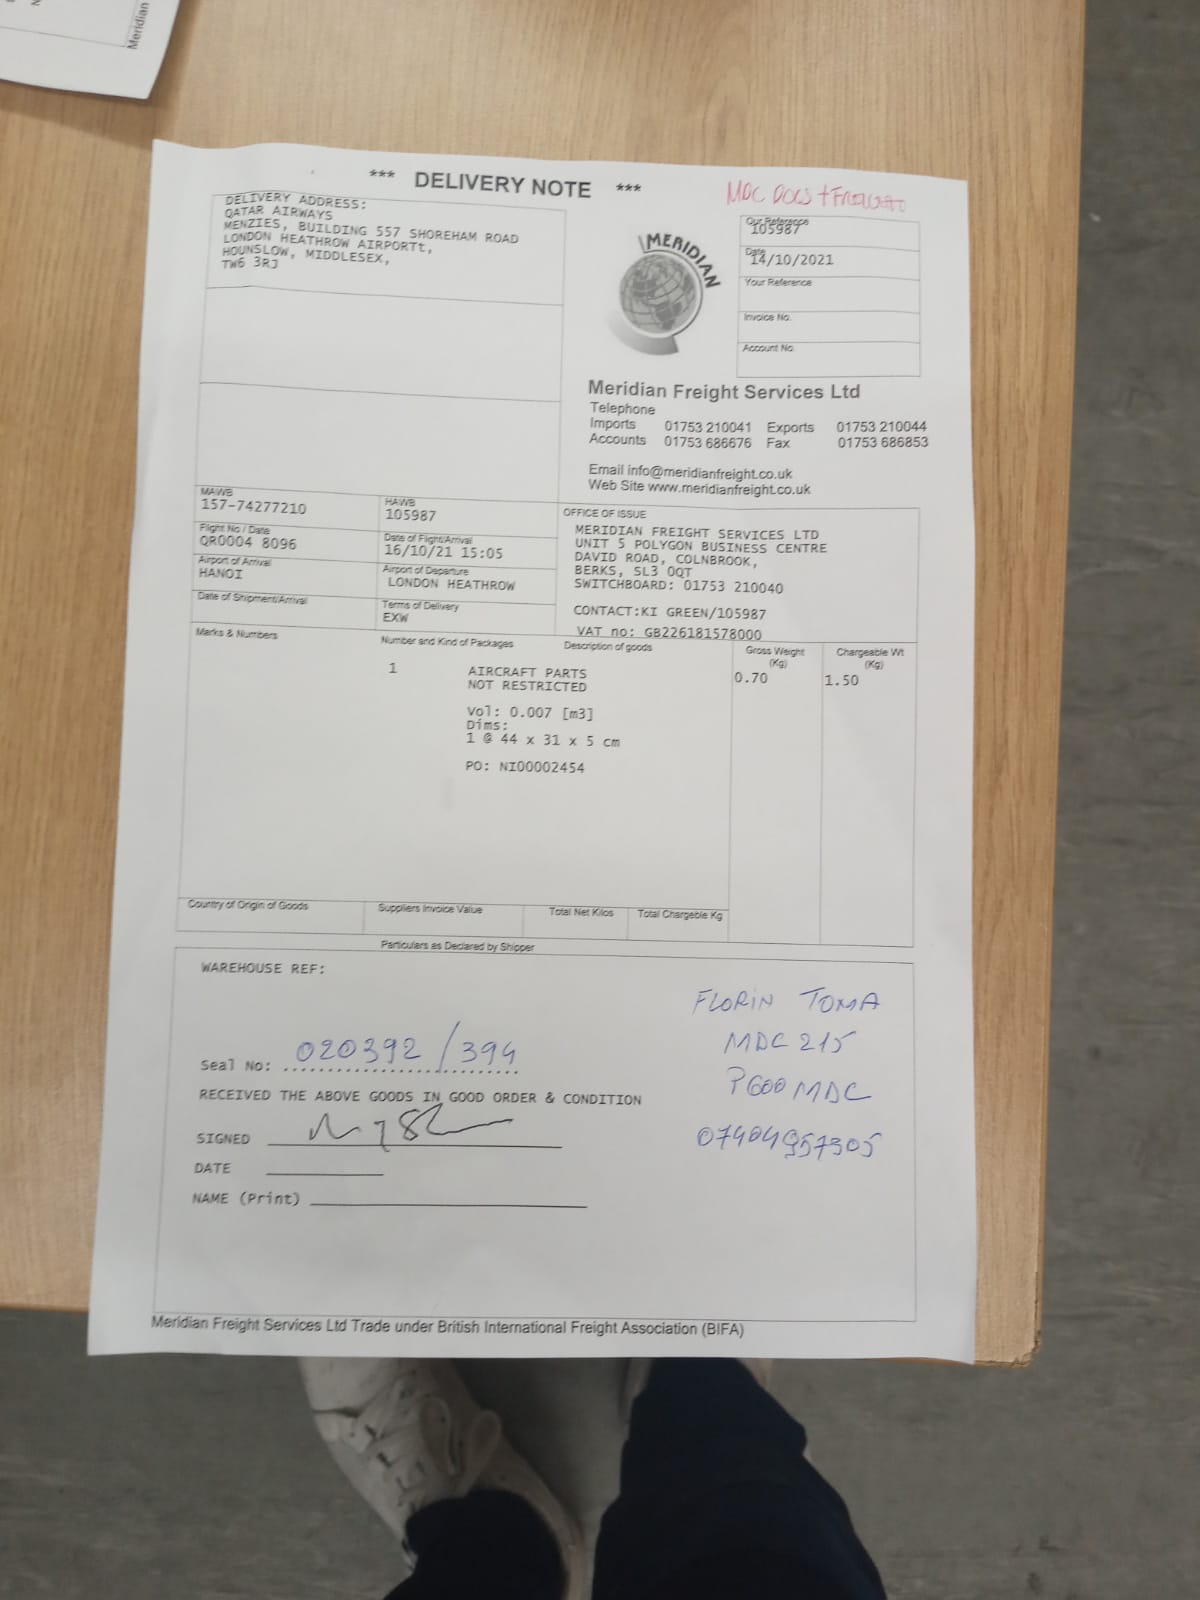 Meridian
*** DELIVERY NOTE ***
MDC DOCS +
DELIVERY ADDRESS:
QATAR AIRWAYS
MENZIES, BUILDING 557 SHOREHAM ROAD
LONDON HEATHROW AIRPORTt,
HOUNSLOW, MIDDLESEX,
TW6 3RJ
MERIDIAN
Our Reference
105987
Date
14/10/2021
Your Reference
Invoice No.
Account No.
Meridian Freight Services Ltd
Telephone
Imports 01753 210041 Exports 01753 210044
Accounts 01753 686676 Fax 01753 686853
Email info@meridianfreight.co.uk
Web Site www.meridianfreight.co.uk
MAWB
157-74277210
HAWB
105987
Flight No / Date
QR0004 8096
Date of Flight/Arrival
16/10/21 15:05
Airport of Arrival
HANOI
Airport of Departure
LONDON HEATHROW
Date of Shipment/Arrival
Terms of Delivery
EXW
OFFICE OF ISSUE
MERIDIAN FREIGHT SERVICES LTD
UNIT 5 POLYGON BUSINESS CENTRE
DAVID ROAD, COLNBROOK,
BERKS, SL3 0QT
SWITCHBOARD: 01753 210040
CONTACT:KI GREEN/105987
VAT no: GB226181578000
Marks & Numbers
Number and Kind of Packages
Description of goods
Gross Weight
(Kg)
Chargeable Wt
(Kg)
1
AIRCRAFT PARTS
NOT RESTRICTED
0.70
1.50
Vol: 0.007 [m3]
Dims:
1 @ 44 x 31 x 5 cm
PO: NI00002454
Country of Origin of Goods
Suppliers Invoice Value
Total Net Kilos
Total Chargeable Kg
Particulars as Declared by Shipper
WAREHOUSE REF:
Seal No: 020392/394
RECEIVED THE ABOVE GOODS IN GOOD ORDER & CONDITION
SIGNED
DATE
NAME (Print)
FLORIN TOMA
MDC 215
P600MDC
07404957305
Meridian Freight Services Ltd Trade under British International Freight Association (BIFA)